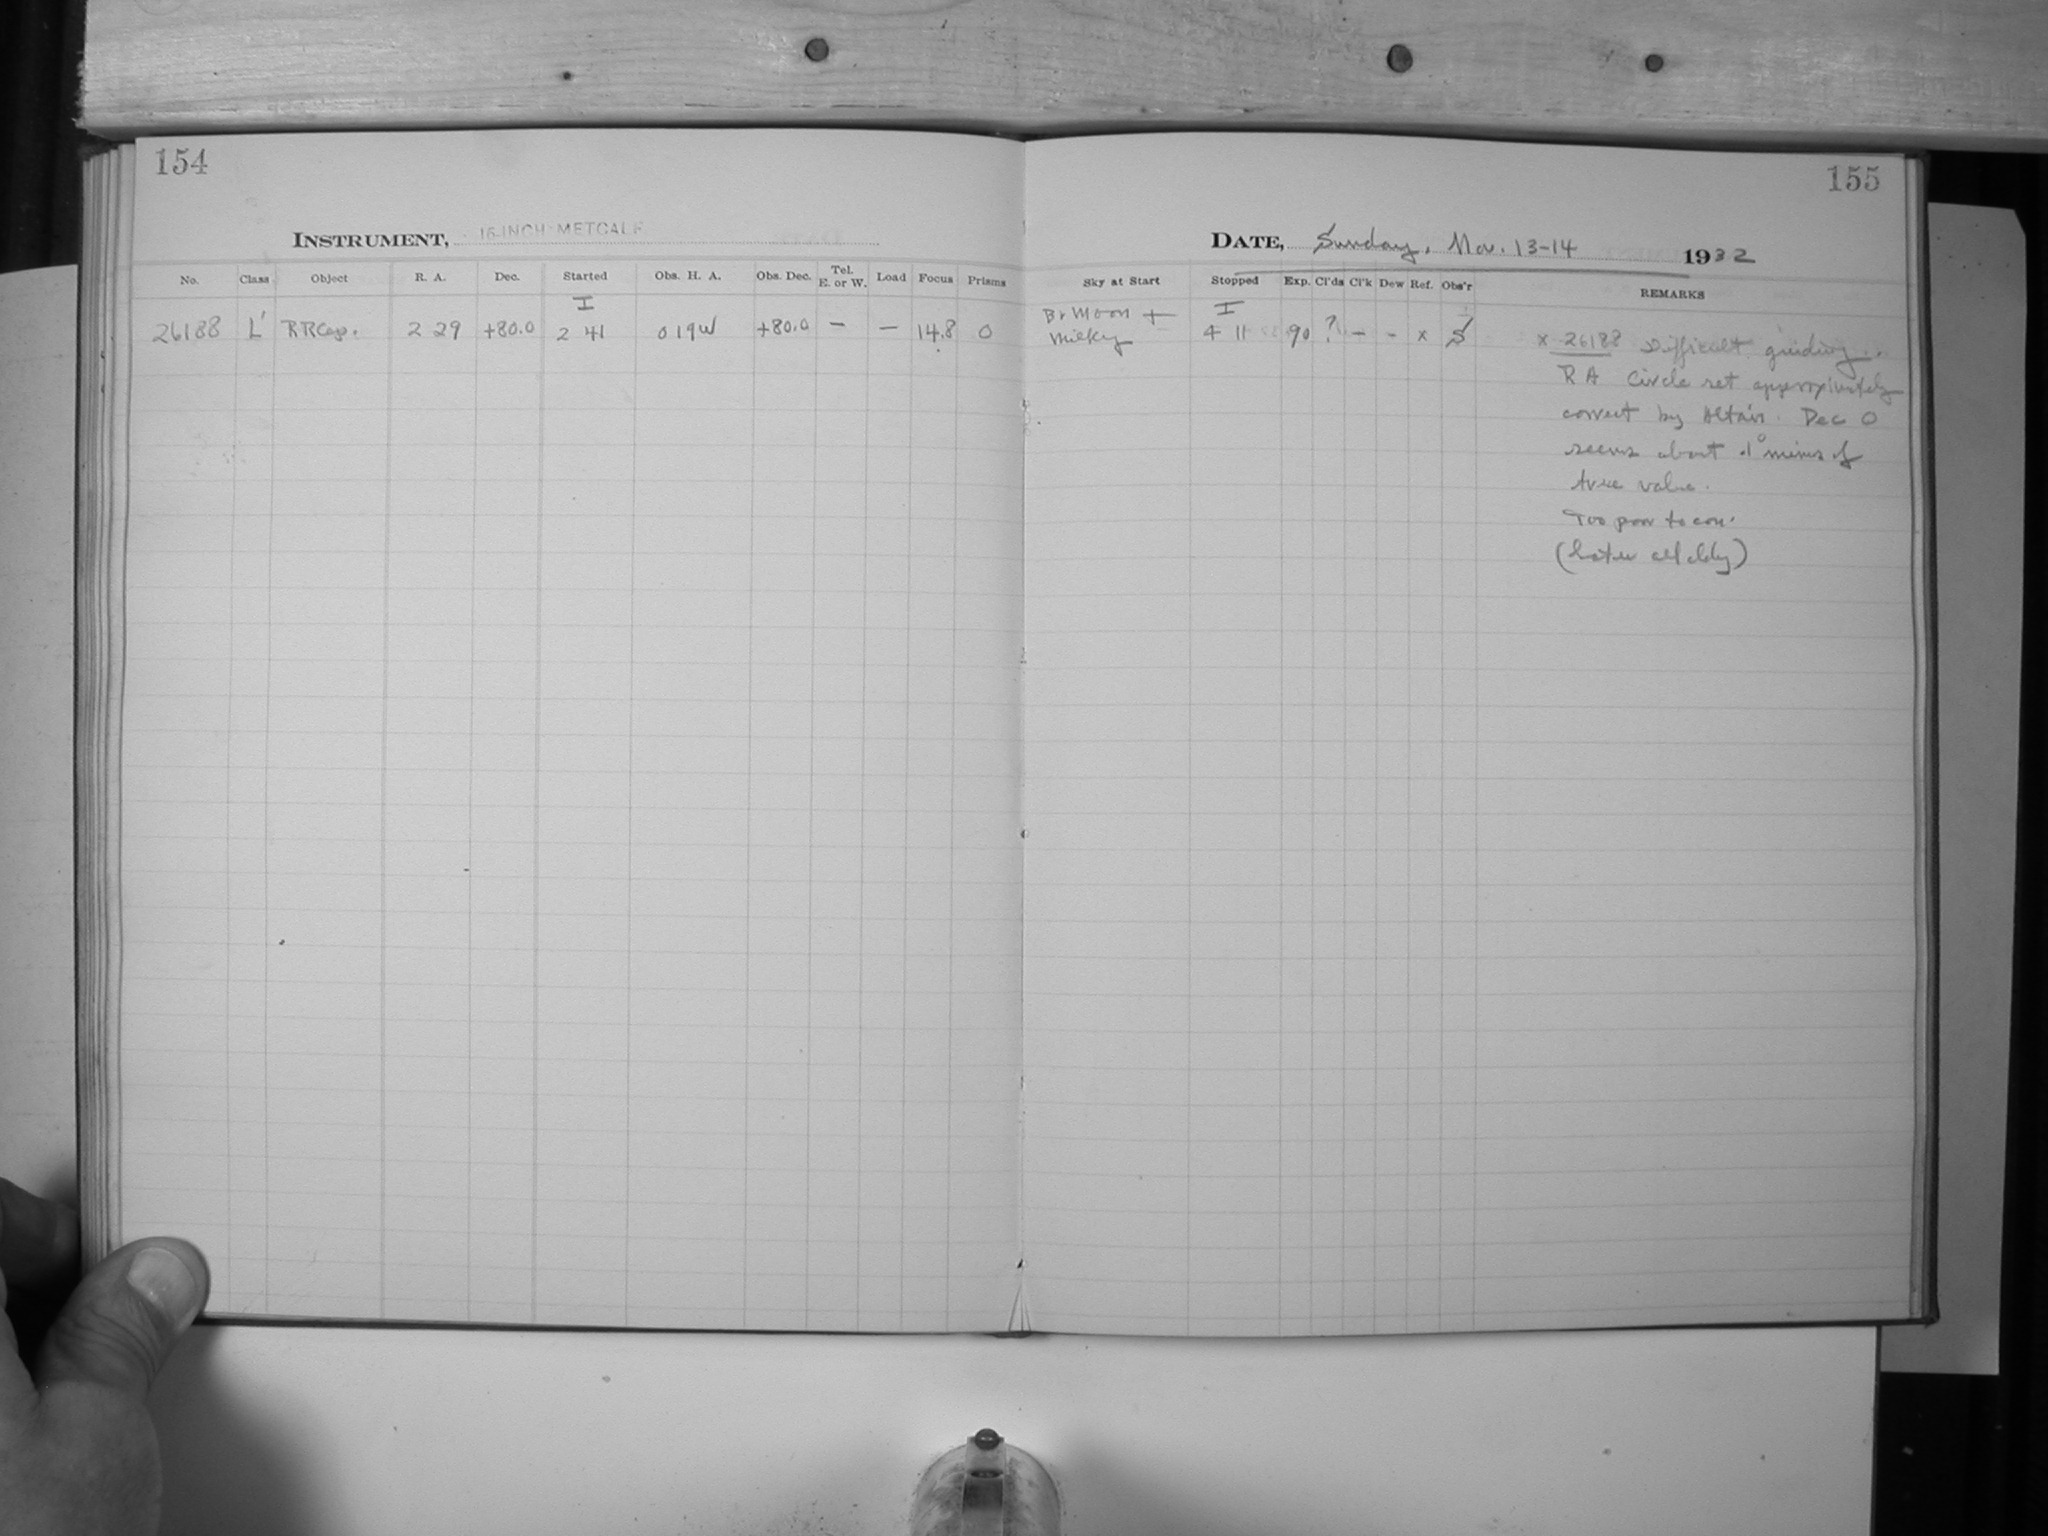 154
INSTRUMENT, 16-INCH METCALF
No. Class Object R. A. Dec. Started Obs. H. A. Obs. Dec. Tel. E. or W. Load Focus Prisms
I
26188 L' RR Cep. 2 29 +80.0 2 41 0 19W +80.0 — — 14.8 0
155
DATE, Sunday, Nov. 13-14 1932
Sky at Start Stopped Exp. Cl'ds Cl'k Dew Ref. Obs'r REMARKS
Br Moon + I
Milky 4 11 90 ? — - x S
x 26188 Difficult guiding.
RA Circle set approximately
correct by Altair. Dec O
seems about .1° minus of
true value.
Too poor to con.
(Later all cldy)